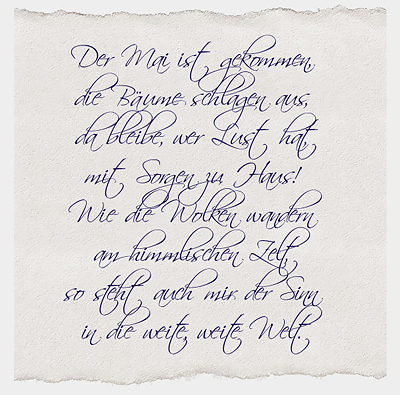 Der Mai ist gekommen,
die Bäume schlagen aus,
da bleibe, wer Lust hat,
mit Sorgen zu Haus!
Wie die Wolken wandern
am himmlischen Zelt,
so steht auch mir der Sinn
in die weite, weite Welt.